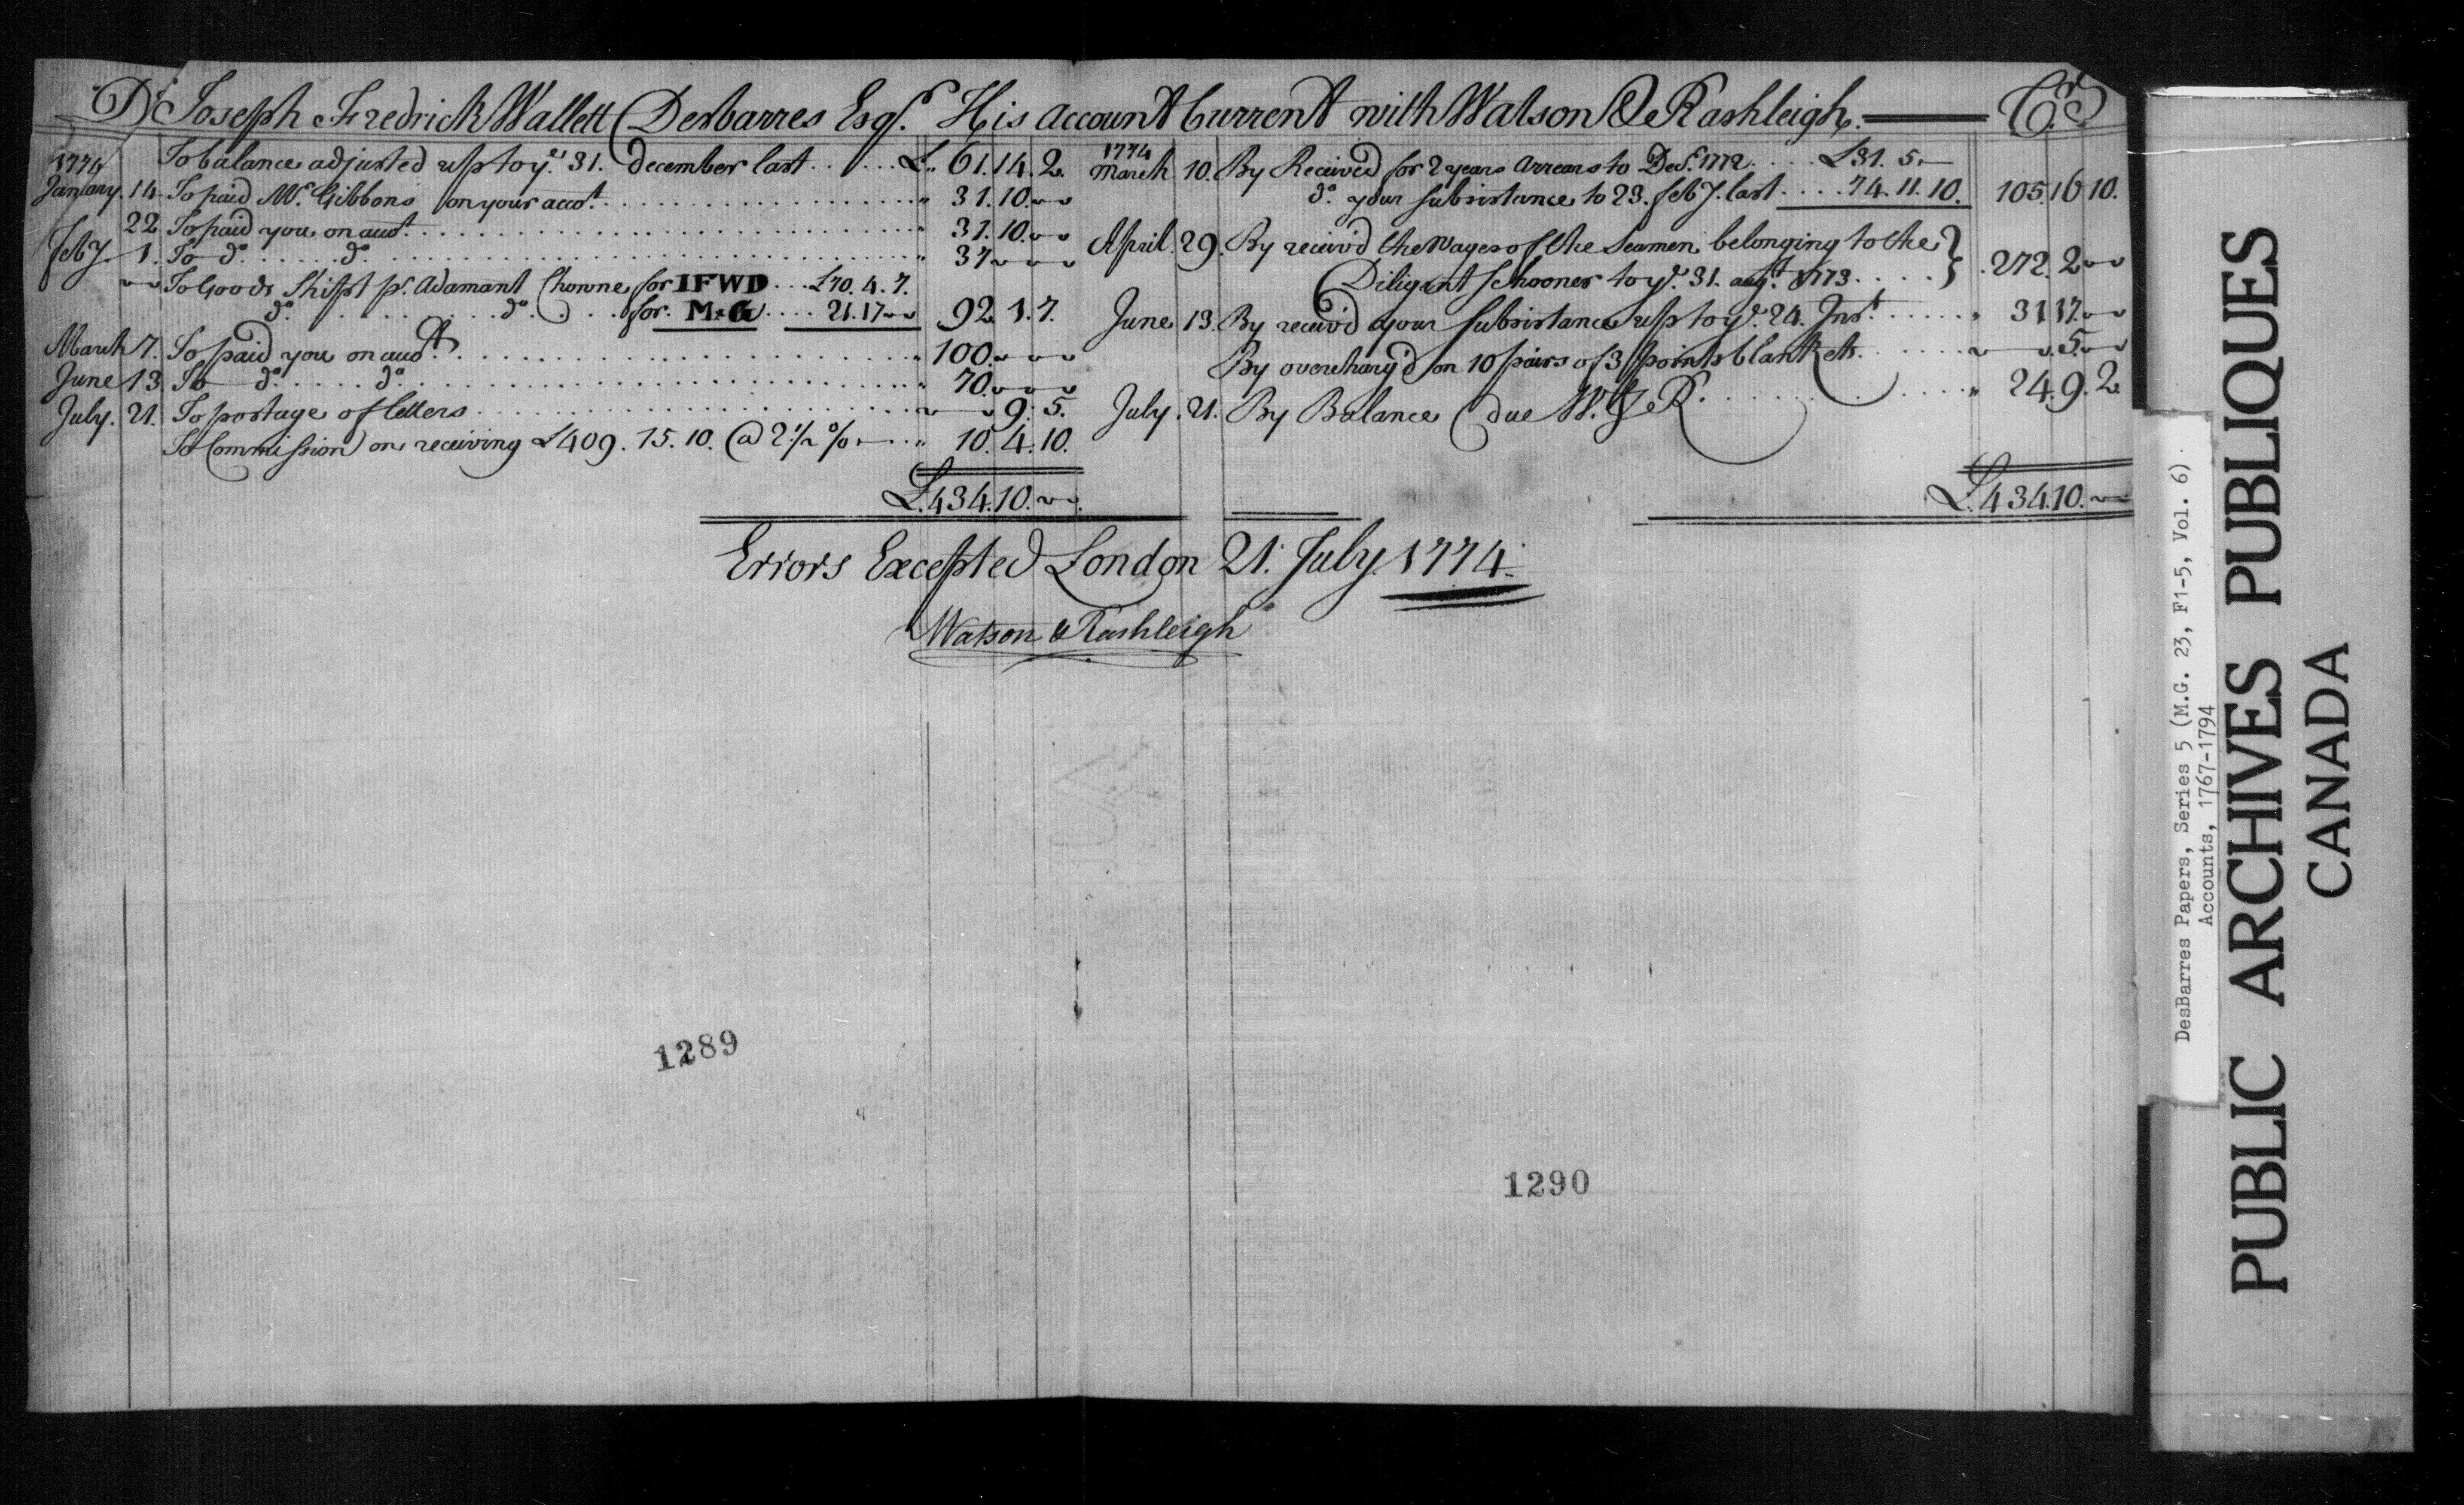 Dr. Joseph Fredrick Wallett Desbarres Esqr. His account Current with Watson & Rashleigh. Cr.
1774
To balance adjusted up to ye. 31. december last . . . . . £ 61. 14. 2.
January. 14. To paid Mr. Gibbons on your accot. . . . . 31. 10. ~ ~
22 To paid you on accot. . . . . 31. 10. ~ ~
Feby. 1. To do. . . . . do. . . . . 37 ~ ~ ~
~ ~ To Goods Shipt pr. Adamant Chowne for IFWD . . . £70. 4. 7.
do. . . . . do. . . . for. M*G . . . . 21. 17 ~ ~ 92. 1. 7.
March 7. To paid you on accot. . . . . 100. ~ ~ ~
June 13 To do. . . . . do. . . . . 70. ~ ~ ~
July. 21. To postage of letters . . . . ~ ~ 9. 5.
To Commission on receiving £409. 15. 10. @ 2½ % . . 10. 4. 10.
£. 434. 10. ~ ~
1774
March 10. By Received for 2 years Arrears to Decr. 1772 . . . . £31. 5. —
do. your subsistance to 23. feby. last . . . . 74. 11. 10. 105. 16 10.
April. 29. By receiv'd the Wages of the Seamen belonging to the }
Diligent Schooner to ye. 31. augt. 1773 . . . . } . 272. 2 ~ ~
June 13. By receiv'd your subsistance up to ye. 24. Inst. . . . . 31 17. ~ ~
By overcharg'd on 10 pairs of 3 points blankets . . . . ~ ~ . 5. ~ ~
July. 21. By Balance due W. & R. . . . . 24. 9. 2
£. 434. 10. ~ ~
Errors Excepted London 21. July. 1774.
Watson & Rashleigh
1289
1290
DesBarres Papers, Series 5 (M.G. 23, F1-5, Vol. 6)
Accounts, 1767-1794
PUBLIC ARCHIVES PUBLIQUES
CANADA